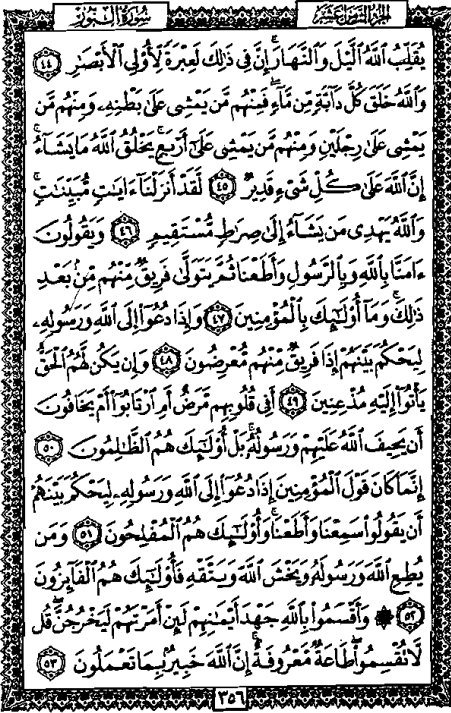 الجزء الثامن عشر
سورة النور
يُقَلِّبُ ٱللَّهُ ٱلَّيْلَ وَٱلنَّهَارَ ۚ إِنَّ فِى ذَٰلِكَ لَعِبْرَةً لِّأُو۟لِى ٱلْأَبْصَٰرِ ٤٤
وَٱللَّهُ خَلَقَ كُلَّ دَآبَّةٍ مِّن مَّآءٍ ۖ فَمِنْهُم مَّن يَمْشِى عَلَىٰ بَطْنِهِۦ وَمِنْهُم مَّن
يَمْشِى عَلَىٰ رِجْلَيْنِ وَمِنْهُم مَّن يَمْشِى عَلَىٰٓ أَرْبَعٍ ۚ يَخْلُقُ ٱللَّهُ مَا يَشَآءُ ۚ
إِنَّ ٱللَّهَ عَلَىٰ كُلِّ شَىْءٍ قَدِيرٌ ٤٥ لَّقَدْ أَنزَلْنَآ ءَايَٰتٍ مُّبَيِّنَٰتٍ ۚ
وَٱللَّهُ يَهْدِى مَن يَشَآءُ إِلَىٰ صِرَٰطٍ مُّسْتَقِيمٍ ٤٦ وَيَقُولُونَ
ءَامَنَّا بِٱللَّهِ وَبِٱلرَّسُولِ وَأَطَعْنَا ثُمَّ يَتَوَلَّىٰ فَرِيقٌ مِّنْهُم مِّنۢ بَعْدِ
ذَٰلِكَ ۚ وَمَآ أُو۟لَٰٓئِكَ بِٱلْمُؤْمِنِينَ ٤٧ وَإِذَا دُعُوٓا۟ إِلَى ٱللَّهِ وَرَسُولِهِۦ
لِيَحْكُمَ بَيْنَهُمْ إِذَا فَرِيقٌ مِّنْهُم مُّعْرِضُونَ ٤٨ وَإِن يَكُن لَّهُمُ ٱلْحَقُّ
يَأْتُوٓا۟ إِلَيْهِ مُذْعِنِينَ ٤٩ أَفِى قُلُوبِهِم مَّرَضٌ أَمِ ٱرْتَابُوٓا۟ أَمْ يَخَافُونَ
أَن يَحِيفَ ٱللَّهُ عَلَيْهِمْ وَرَسُولُهُۥ ۚ بَلْ أُو۟لَٰٓئِكَ هُمُ ٱلظَّٰلِمُونَ ٥٠
إِنَّمَا كَانَ قَوْلَ ٱلْمُؤْمِنِينَ إِذَا دُعُوٓا۟ إِلَى ٱللَّهِ وَرَسُولِهِۦ لِيَحْكُمَ بَيْنَهُمْ
أَن يَقُولُوا۟ سَمِعْنَا وَأَطَعْنَا ۚ وَأُو۟لَٰٓئِكَ هُمُ ٱلْمُفْلِحُونَ ٥١ وَمَن
يُطِعِ ٱللَّهَ وَرَسُولَهُۥ وَيَخْشَ ٱللَّهَ وَيَتَّقْهِ فَأُو۟لَٰٓئِكَ هُمُ ٱلْفَآئِزُونَ
٥٢ ۞ وَأَقْسَمُوا۟ بِٱللَّهِ جَهْدَ أَيْمَٰنِهِمْ لَئِنْ أَمَرْتَهُمْ لَيَخْرُجُنَّ ۖ قُل
لَّا تُقْسِمُوا۟ ۖ طَاعَةٌ مَّعْرُوفَةٌ ۚ إِنَّ ٱللَّهَ خَبِيرٌۢ بِمَا تَعْمَلُونَ ٥٣
٣٥٦